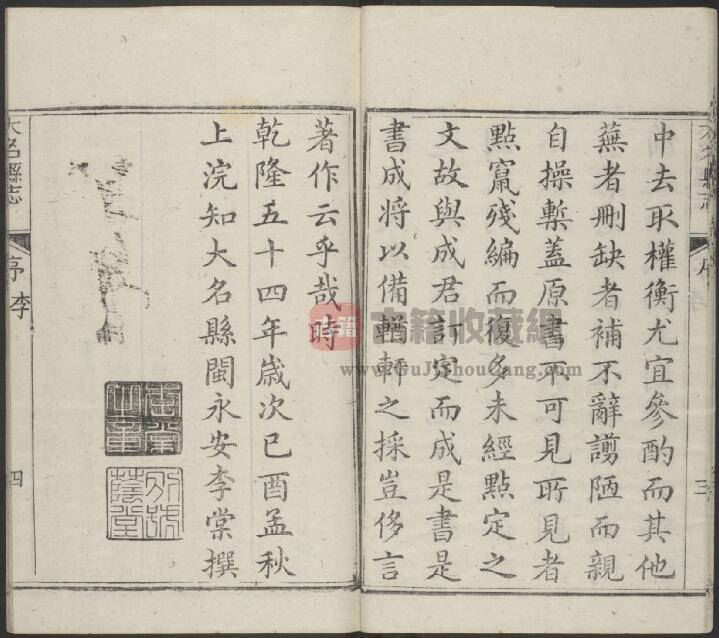 中去取權衡尤宜參酌而其他
蕪者刪缺者補不辭謭陋而親
自操槧蓋原書不可見所見者
點竄殘編而復多未經點定之
文故與成君訂定而成是書是
書成將以備輶軒之採豈侈言
著作云乎哉時
乾隆五十四年歲次己酉孟秋
上浣知大名縣閩永安李棠撰
大名縣志
序 李
四
序
三
古籍收藏網
www.GuJiShouCang.com